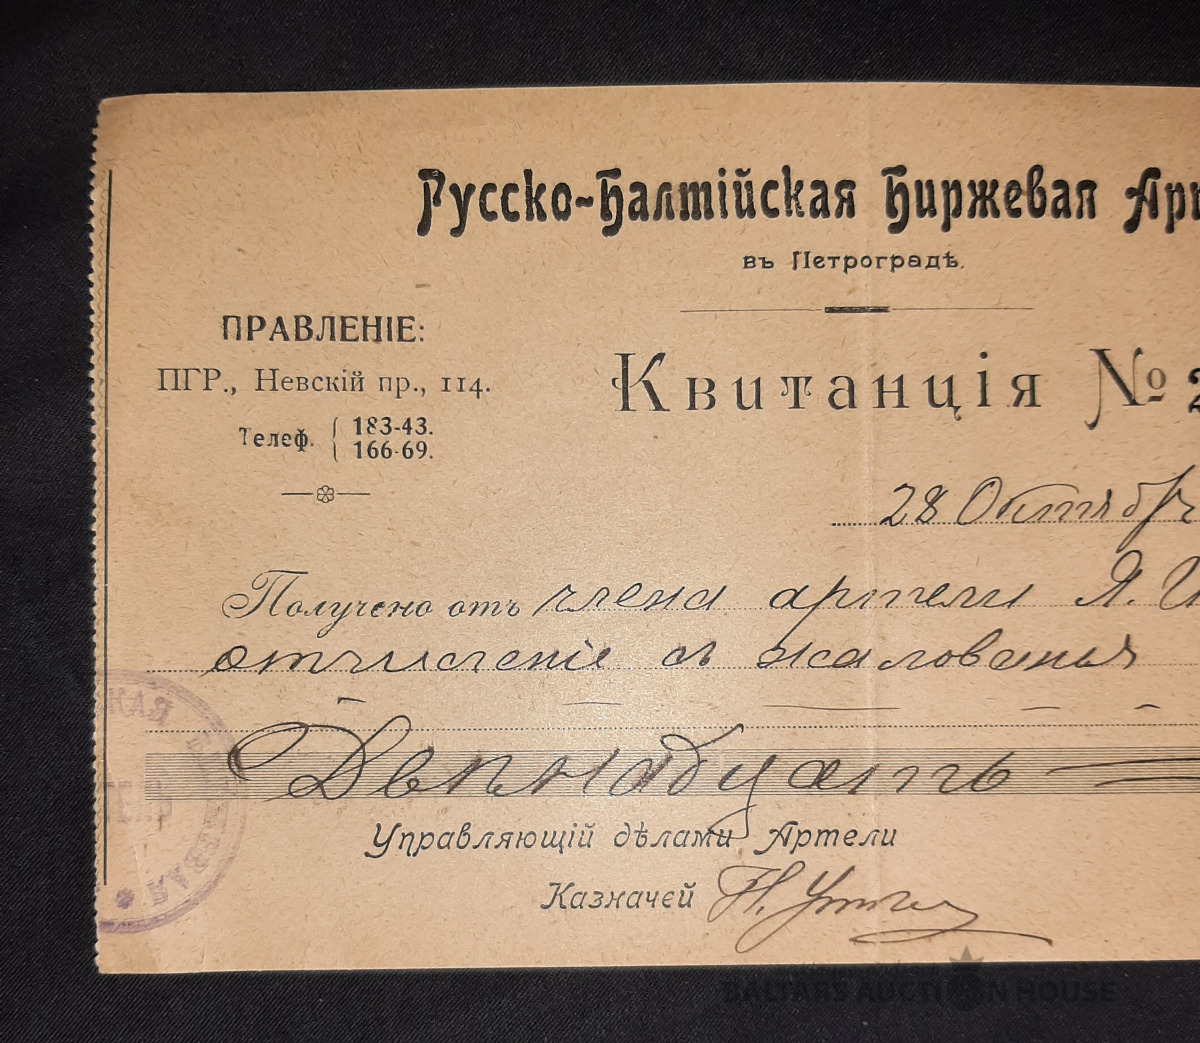 Русско-Балтійская Биржевая Арт
въ Петроградѣ.
ПРАВЛЕНІЕ:
ПГР., Невскій пр., 114.
Телеф. 183-43.
166-69.
Квитанція № 2
28 Октября
Получено отъ члена артели Я. И
отчисленіе съ жалованья
Двѣнадцать
Управляющій дѣлами Артели
Казначей
BALTARS AUCTION HOUSE